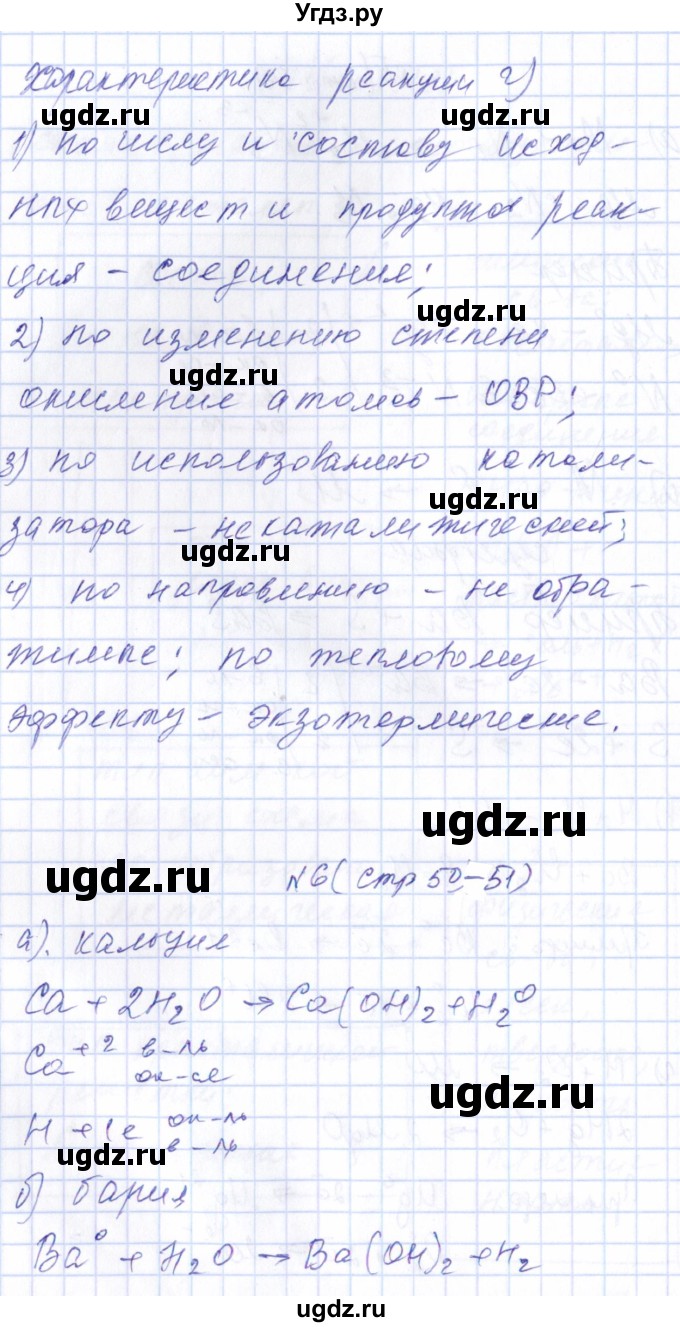 Угдз.ру
Характеристика реакции г)
ugdz.ru ugdz.ru
1) по числу и составу исход-
ных веществ и продуктов реак-
ция - соединения;
ugdz.ru
2) по изменению степени
ugdz.ru
окисление атомов - ОВР;
3) по использованию катали-
ugdz.ru
затора - некаталитический;
ugdz.ru
4) по направлению - не обра-
тимые; по тепловому
эффекту - экзотермические.
ugdz.ru
ugdz.ru
№6 (стр 50-51)
а). кальция
Ca + 2H₂O → Ca(OH)₂ + H₂⁰
Ca⁺² в-ль
ок-ся
ugdz.ru
H + 1e ок-ль
в-ль
ugdz.ru
б) бария
Ba⁰ + H₂O → Ba(OH)₂ + H₂
ugdz.ru